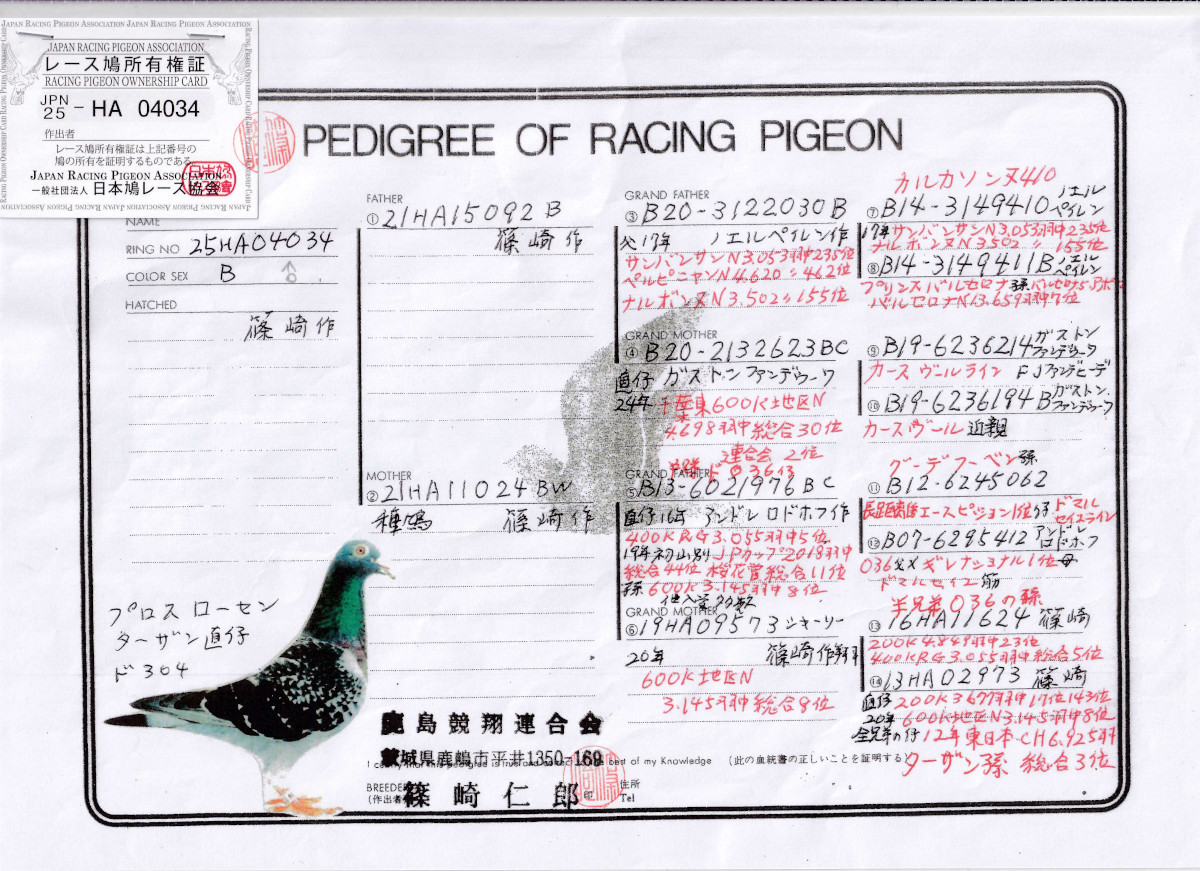 JAPAN RACING PIGEON ASSOCIATION
レース鳩所有権証
RACING PIGEON OWNERSHIP CARD
JPN 25 - HA 04034
作出者
レース鳩所有権証は上記番号の
鳩の所有を証明するものである。
JAPAN RACING PIGEON ASSOCIATION
一般社団法人 日本鳩レース協会
PEDIGREE OF RACING PIGEON
NAME
RING NO 25HA04034
COLOR SEX B ♂
HATCHED
篠崎作
プロスローセン
ターザン直仔
ド304
FATHER
①21HA15092 B
篠崎作
MOTHER
②21HA11024 BW
種鳩 篠崎作
GRAND FATHER
③B20-3122030 B
父17年 ノエルペイレン作
サンバンサンN3.053羽中235位
ペルピニャンN4.620〃462位
ナルボンヌN3.502〃155位
GRAND MOTHER
④B20-2132623 BC
直仔 ガストンファンデウーワ
24年 千葉東600K地区N
4698羽中総合30位
連合会 2位
GRAND FATHER
⑤B13-6021976 BC
直仔16年 アンドレロドホフ作
400KRG3.055羽中5位
19年初山別JPカップ2018羽中
総合44位 桜花賞総合11位
孫600K3.145羽中8位
他入賞多数
GRAND MOTHER
⑥19HA09573 シキーリー
20年 篠崎作翔
600K地区N
3.145羽中総合8位
カルカソンヌ410
⑦B14-3149410 ノエルペイレン
17年サンバンサンN3.053羽中235位
ナルボンヌN3.502〃155位
⑧B14-3149411B ノエルペイレン
バルセロナN13.659羽中7位
⑨B19-6236214 ガストンファンデウーワ
カースヴールライン FJファンデヒーデ
⑩B19-6236194B ガストンファンデウーワ
カースヴール近親
グーデフーベン孫
⑪B12-6245062
長距離エースピジョン1位仔 ドマルセイユライン
⑫B07-6295412 アンドレロドホフ
036父× ギレナショナル1位母
ドマルセイユ筋
半兄弟036の孫
⑬16HA11624 篠崎
200K4.849羽中23位
400KRG3.055羽中総合5位
⑭13HA02973 篠崎
直仔200K3677羽中17位143位
20年600K地区N3.145羽中8位
全兄弟の仔12年東日本CH6.925羽
ターザン孫 総合3位
鹿島競翔連合会
茨城県鹿嶋市平井1350-169
best of my Knowledge (此の血統書の正しいことを証明する)
BREEDER
(作出者 篠崎仁郎 印
住所
Tel